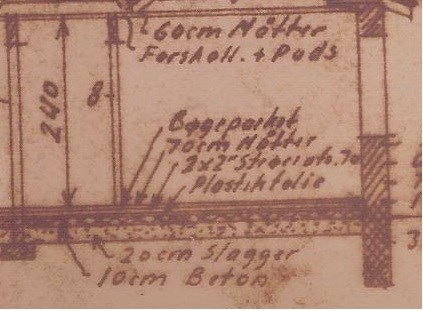 60cm Måtter
Forskall. + Puds
240
8
Bøgeparket
70cm Måtter
2x2" Strøer
Plastikfolie
20cm Slagger
10cm Beton
3